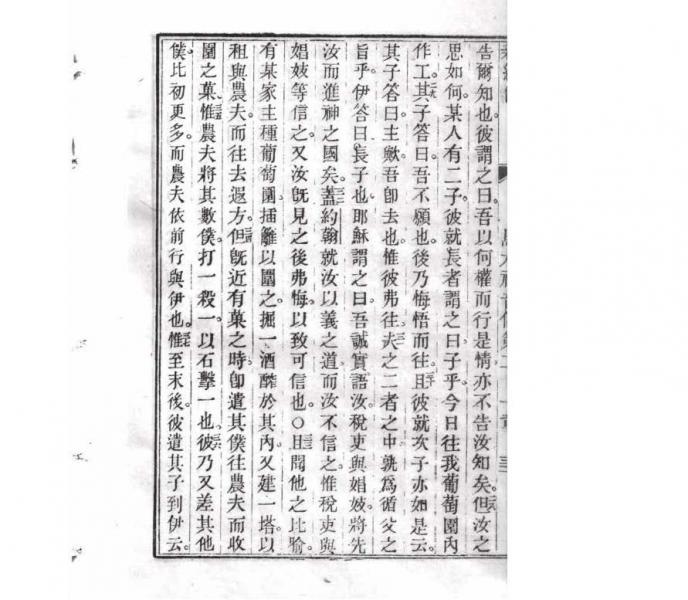 告爾知也。彼謂之曰吾以何權而行是情亦不告汝知矣。但汝之
思如何。某人有二子彼就長者謂之曰子乎今日往我葡萄園內
作工。其子答曰吾不願也後乃悔悟而往。且彼就次子亦如是云。
其子答曰主歟吾卽去也。惟彼弗往。夫之二者之中孰爲循父之
旨乎。伊答曰長子也。耶穌謂之曰吾誠實語汝稅吏與娼妓將先
汝而進神之國矣。蓋約翰就汝以義之道而汝不信之。惟稅吏與
娼妓等信之。又汝既見之後弗悔以致可信也。○且聞他之比喻。
有某家主種葡萄園揷籬以圍之。掘一酒醡於其內又建一塔。以
租與農夫而往去遐方。但既近有菓之時卽遣其僕往農夫而收
園之菓。惟農夫將其數僕打一殺一。以石擊一也。彼乃又差其他
僕比初更多。而農夫依前行與伊也。惟至末後彼遣其子到伊云。